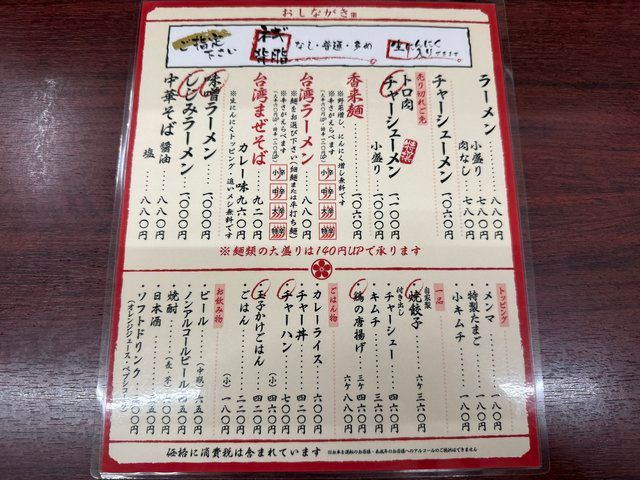 おしながき
ご指定下さい
背脂
なし・普通・多め
生にんにく入りできます
ラーメン 八八〇円
小盛り 七八〇円
肉なし 七八〇円
チャーシューメン 一〇六〇円
売り切れご免
トロ肉
チャーシューメン 一一〇〇円
小盛り 一〇〇〇円
香来麺 一〇六〇円
※野菜増し、にんにく増し無料です
※辛さがえらべます
台湾ラーメン 八八〇円
※麺をお選び下さい(細麺または平打ち麺)
※辛さがえらべます
小辛
中辛
大辛
特辛
台湾まぜそば 九二〇円
カレー味 九六〇円
※生にんにくトッピング・追いメシ無料です
味噌ラーメン 一〇〇〇円
しじみラーメン 一〇〇〇円
中華そば 醤油 八八〇円
塩 八八〇円
※麺類の大盛りは140円UPで承ります
トッピング
メンマ 一八〇円
特製たまご 一八〇円
小キムチ 一八〇円
一品
自家製
焼餃子 六ケ 三六〇円
付き出し
チャーシュー 四六〇円
キムチ 三六〇円
鶏の唐揚げ 三ケ 三六〇円
六ケ
ごはん物
カレーライス 六〇〇円
チャー丼 四二〇円
チャーハン 七〇〇円
(小) 四六〇円
玉子かけごはん 四二〇円
ごはん 二二〇円
(小) 一八〇円
お飲み物
ビール (中瓶) 六五〇円
ノンアルコールビール 四五〇円
焼酎 (麦・芋)
日本酒 四五〇円
ソフトドリンク
(オレンジジュース・ペプシコーラ)
価格に消費税は含まれています
※お車を運転のお客様・未成年のお客様へのアルコールのご提供はできません